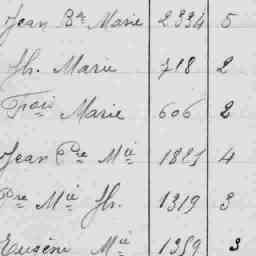 Jean Bte Marie 2334 5
Jh. Marie 718 2
Frois Marie 606 2
Jean Pre Mie 1825 4
Pre Mie Jh. 1319 3
Eugène Mie 1359 3